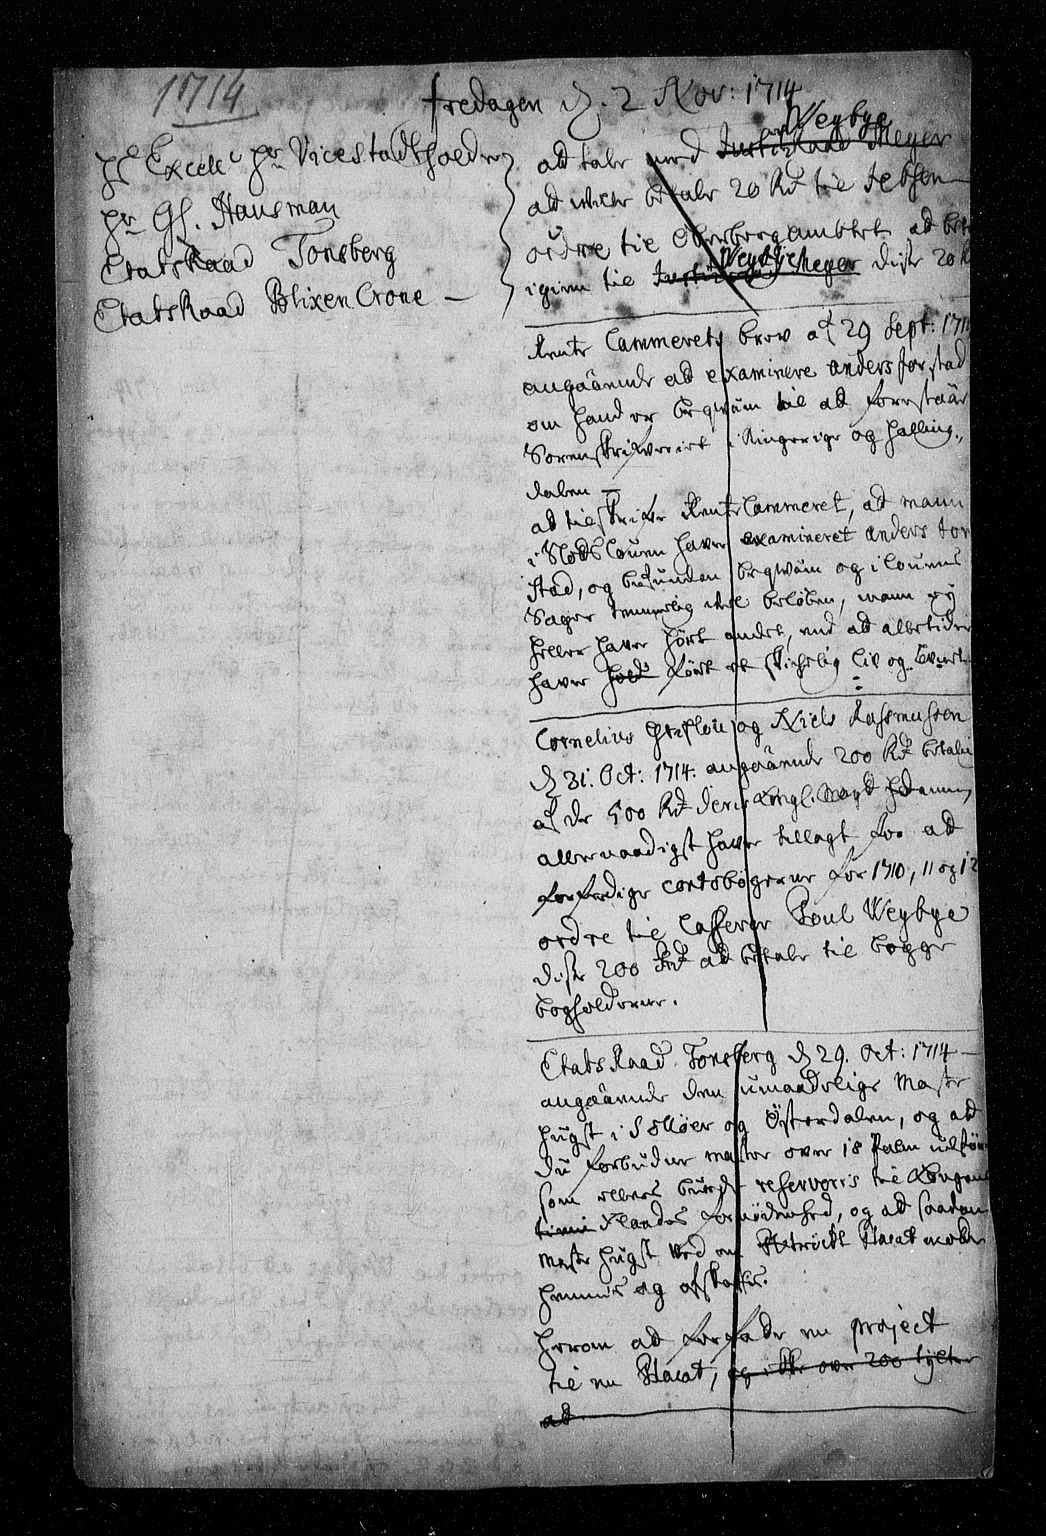 1714
fredagen d. 2 Nov: 1714
hs Excell: hr Vicestadtholder
hr Gl. Hausman
EtatsRaad Tonsberg
EtatsRaad Blixencrone –
Weybye
at tale med Justitzraad Meyer
at betale 20 Rd til Jebsen
ordre til Oberbergambtet at
igien til Weybye Meyer disse 20 R
Rente Cammerets brev af 29 Sept: 171
angaaende at examinere anders forstad
om hand er beqwäm til at forestaa
Sorenskriferiet i Ringerige og Halling-
dalen –
at tilskrife Rente Cammeret, at mann
i Slodslouen hafver examineret anders for
stad, og befunden beqwäm og i louens
Sager temmelig vel beløben, mann ey
heller hafver hørt andet, end at alletider
hafver ført et skickelig liv og lev
Cornelius og Niels Rasmussen
d 31. Oct: 1714. angaaende 200 Rd betal
af de 500 Rd deris Kongl. Mayt dennem
allernaadigst hafver tillagt for at
forferdige contobøgerne for 1710, 11 og 12
ordre til Casserer Poul Weybye
disse 200 Rd at betale til begge
bogholderne.
EtatsRaad Tonsberg d 29. Oct: 1714 –
angaaende den umaadelige Maste
hugst i Soløer og Østerdalen, og at
du forbudne master over 18 Palm
som ellers burde reserveris til Kongens
Flaades fornødenhed, og at saadan
Maste hugst ved en Placat
hemmis og afskaffis.
herom at forfade en project
til en Placat, og ikke over 200 tylter
at